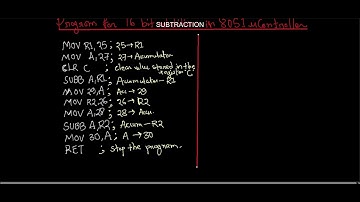 Program for 16 bit SUBTRACTION in 8051 uController
MOV R1,25; 25→R1
MOV A,27; 27→Acumulator
CLR C ; clear value stored in the register "C"
SUBB A,R1; Acumulator-R1
MOV 29,A; Au→29
MOV R2,26; 26→R2
MOV A,28; 28→Acu.
SUBB A,R2; Acum-R2
MOV 30,A; A→30
RET ; stop the program.